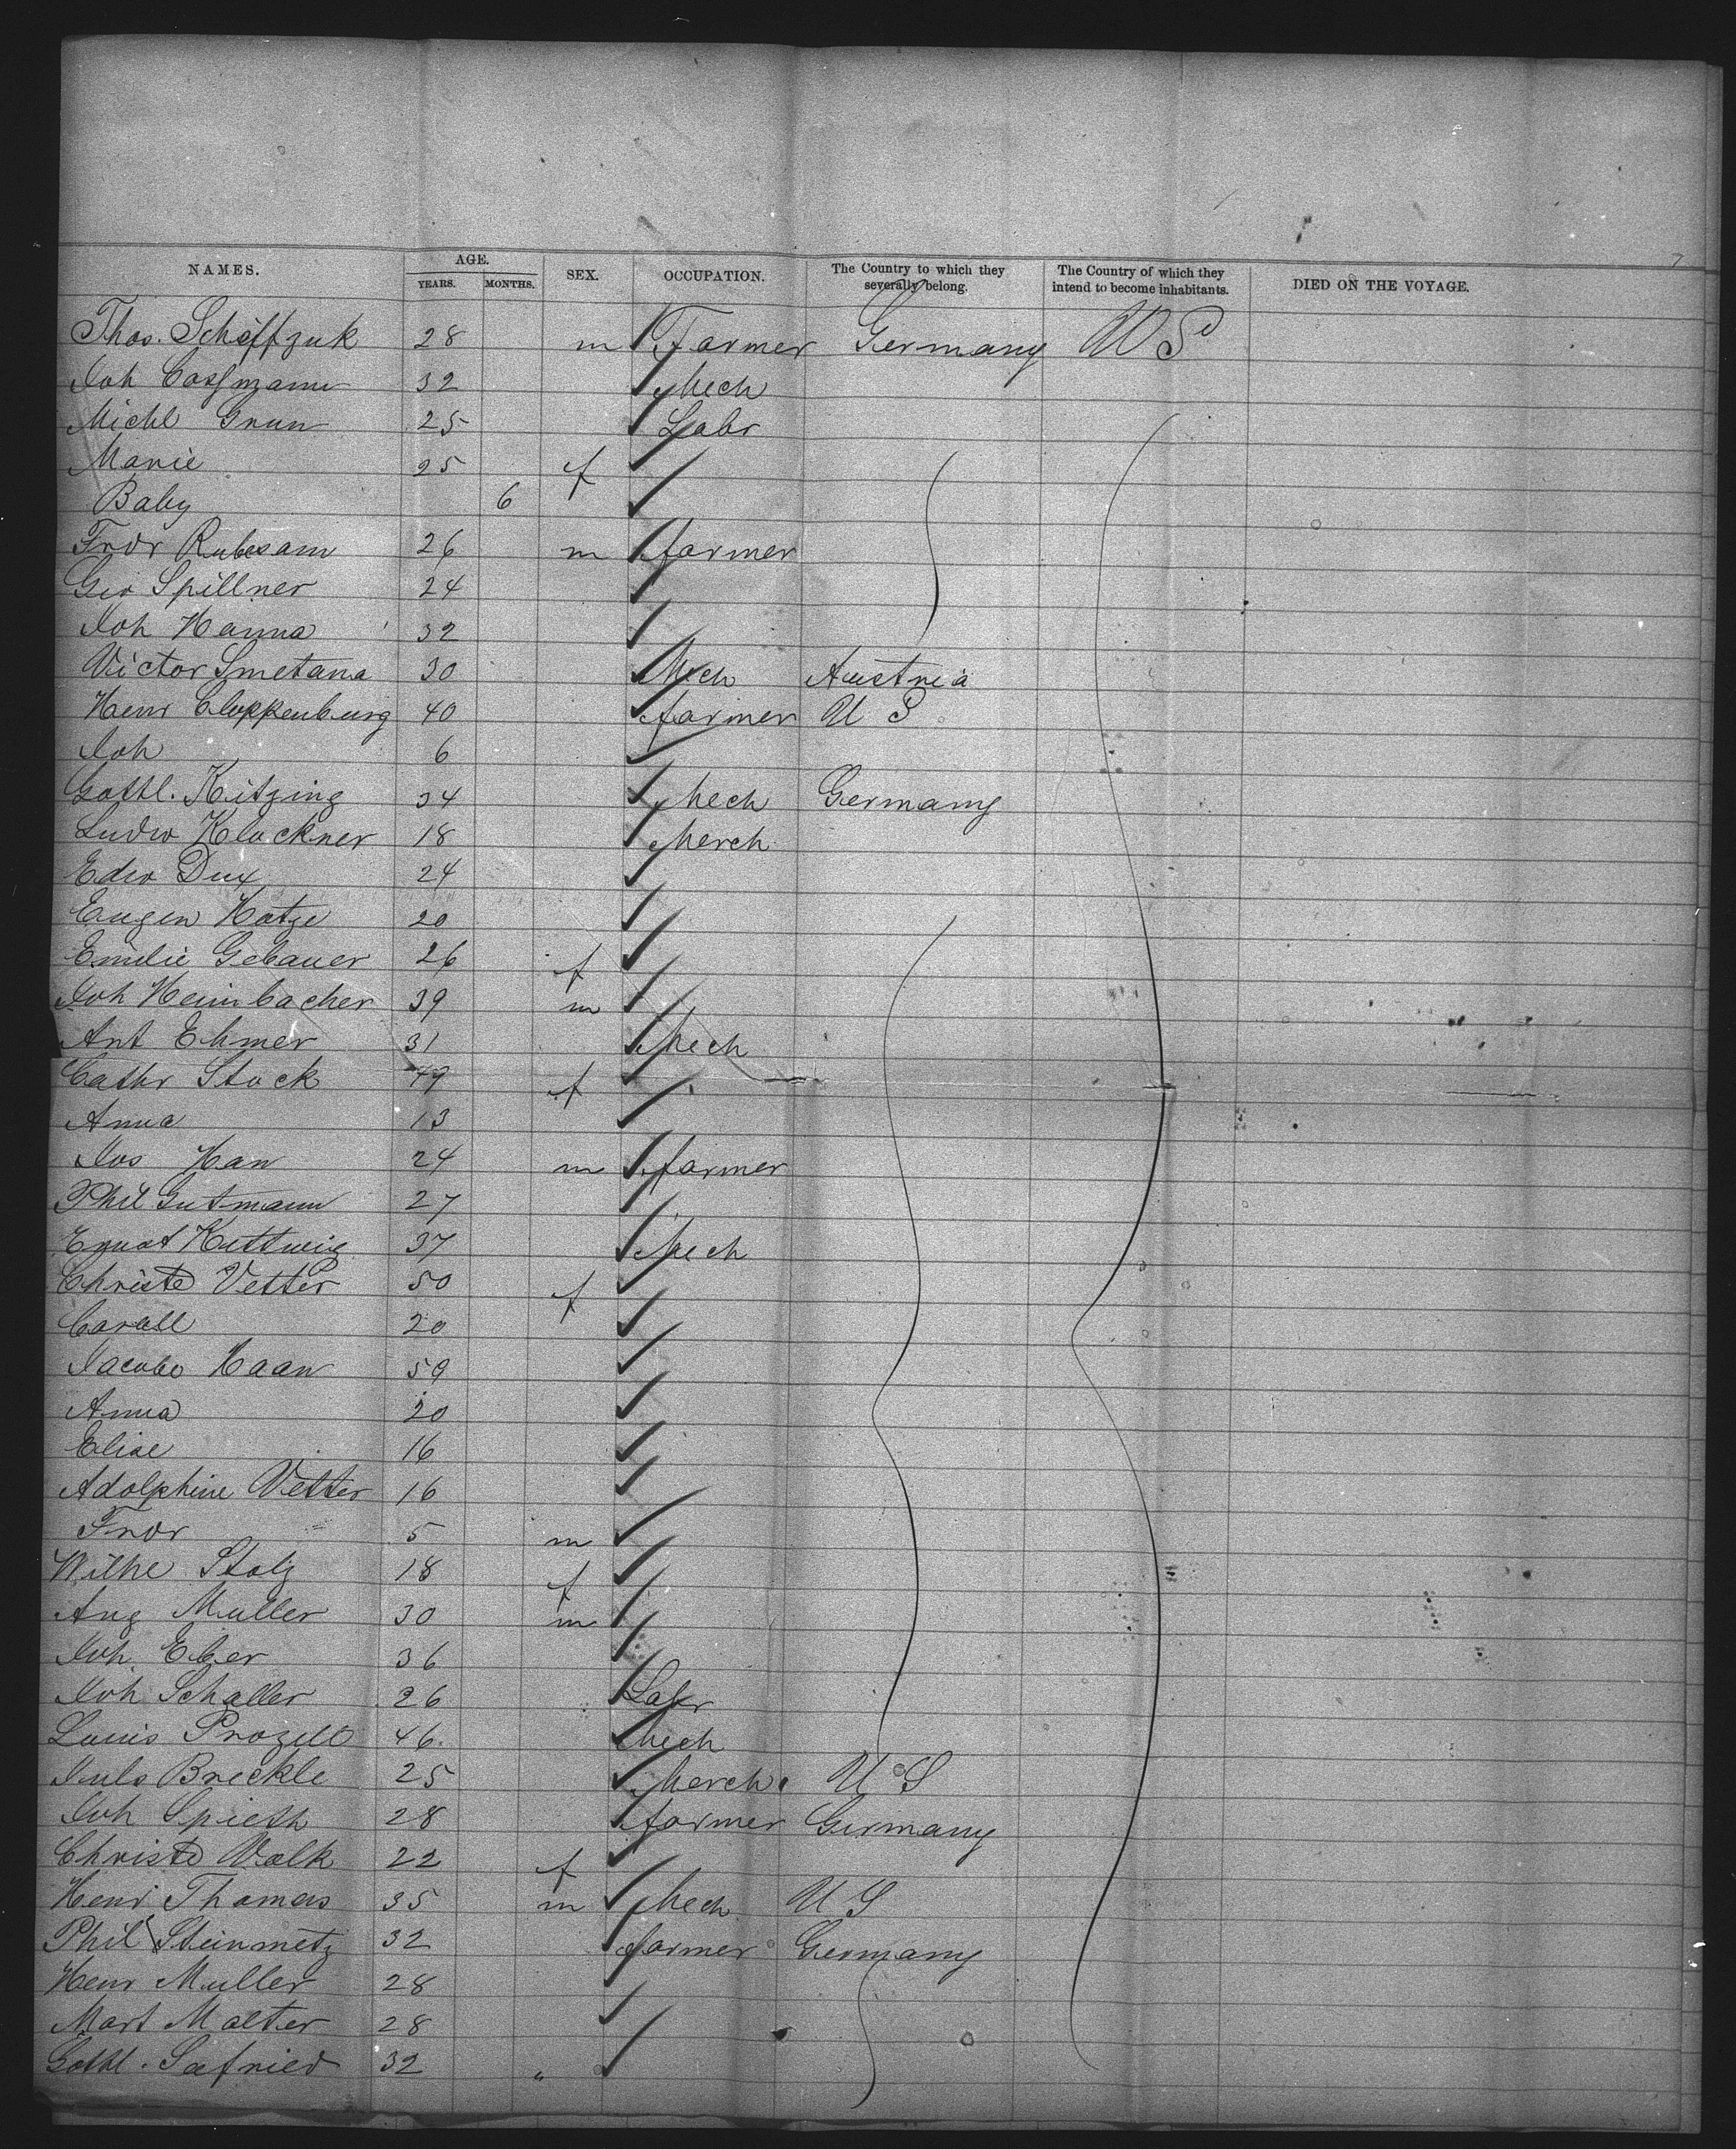 NAMES. AGE. SEX. OCCUPATION. The Country to which they severally belong. The Country of which they intend to become inhabitants. DIED ON THE VOYAGE.
YEARS. MONTHS.
Thos. Schoffzuk 28 m Farmer Germany US
Joh Cossmann 32 Mech
Michl Grun 25 Labr
Marie 25 f
Baby 6
Fridr Rubesam 26 m farmer
Geo Spillner 24
Joh Hanna 32
Victor Smetana 30 Mech Austria
Henr Cloppenburg 40 farmer U S
Joh 6
Gottl. Kitzing 34 Mech Germany
Ludw Klockner 18 Merch
Edw Dux 24
Eugen Hotze 20
Emilie Gebauer 26 f
Joh Heimbacher 39 m
Ant Ehmer 31 Mech
Cathr Stock 49 f
Anna 13
Jos Han 24 m farmer
Phil Gutmann 27
Ernst Huttweig 37 Mech
Christe Vetter 50 f
Caroll 20
Jacobe Haan 59
Anna 20
Elise 16
Adolphine Vetter 16
Fridr 5 m
Wilhe Stolz 18 f
Aug Muller 30 m
Joh Eber 36
Joh Schaller 26 Labr
Louis 46 Mech
Juls Breckle 25 Merch U S
Joh Spieth 28 farmer Germany
Christe Valk 22 f
Henr Thomas 35 m Mech U S
Phil Steinmetz 32 farmer Germany
Henr Muller 28
Mart Malter 28
Gottl. Safried 32 "